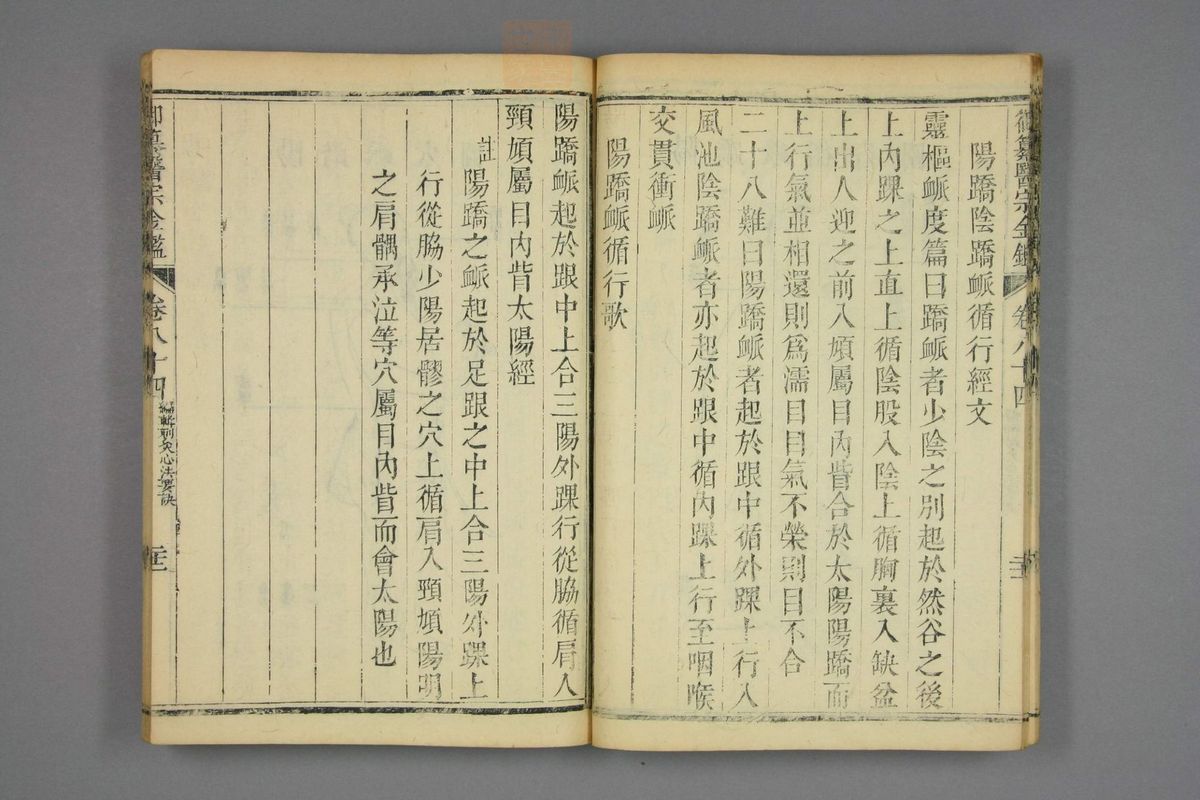 御纂醫宗金鑑 卷八十四
陽蹻陰蹻衇循行經文
靈樞衇度篇曰蹻衇者少陰之別起於然谷之後
上內踝之上直上循陰股入陰上循胸裏入缺盆
上出人迎之前入頄屬目內眥合於太陽陽蹻而
上行氣並相還則爲濡目目氣不榮則目不合
二十八難曰陽蹻衇者起於跟中循外踝上行入
風池陰蹻衇者亦起於跟中循內踝上行至咽喉
交貫衝衇
陽蹻衇循行歌
陽蹻衇起於跟中上合三陽外踝行從脇循肩入
頸頄屬目內眥太陽經
註陽蹻之衇起於足跟之中上合三陽外踝上
行從脇少陽居髎之穴上循肩入頸頄陽明
之肩髃承泣等穴屬目內眥而會太陽也
御纂醫宗金鑑 卷八十四 編輯刺灸心法要訣